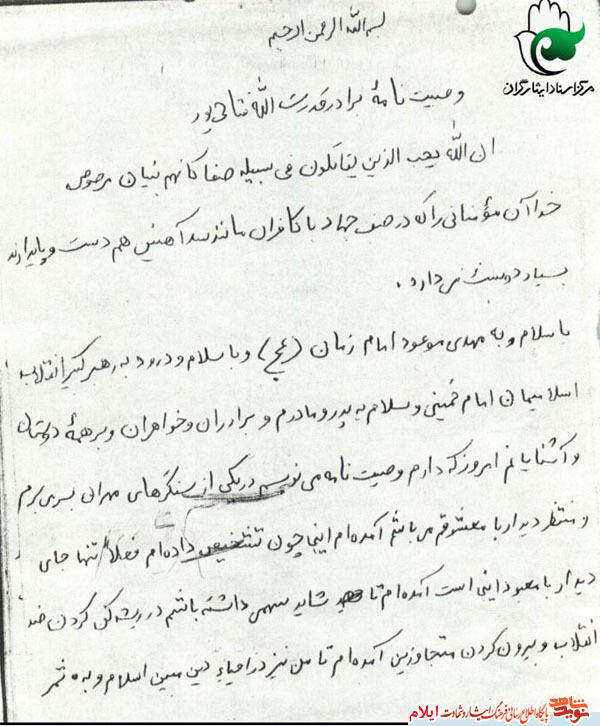 بسم الله الرحمن الرحیم
مرکز اسناد ایثارگران
وصیت نامهٔ برادر قدرت الله فتاحی پور
ان الله یحب الذین یقاتلون فی سبیله صفا کانهم بنیان مرصوص
خدا آن مؤمنانی را که در صف جهاد با کافران مانند سد آهنین هم دست و پایدارند
بسیار دوست می دارد .
با سلام و به مهدی موعود امام زمان (عج) و با سلام و درود به رهبر کبیر انقلاب
اسلامیمان امام خمینی و سلام به پدر و مادرم و برادران و خواهران و بر همهٔ دوستان
و آشنایانم امروز که دارم وصیت نامه می نویسم در یکی از سنگرهای مهران بسر می برم
و منتظر دیدار با معشوقم می باشم آمده ام اینجا چون تشخیص داده ام فعلاً تنها جای
دیدار با معبود اینجا است آمده ام تا شاید سهمی داشته باشم در ریشه کن کردن ضد
انقلاب و بیرون کردن متجاوزین آمده ام تا من نیز در احیاء دین مبین اسلام و به ثمر
نوید شاهد پایگاه اطلاع رسانی فرهنگ ایثار و شهادت ایلام